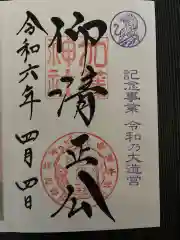 記念事業 令和乃大造営
加藤神社
仰清正公
令和六年 四月四日